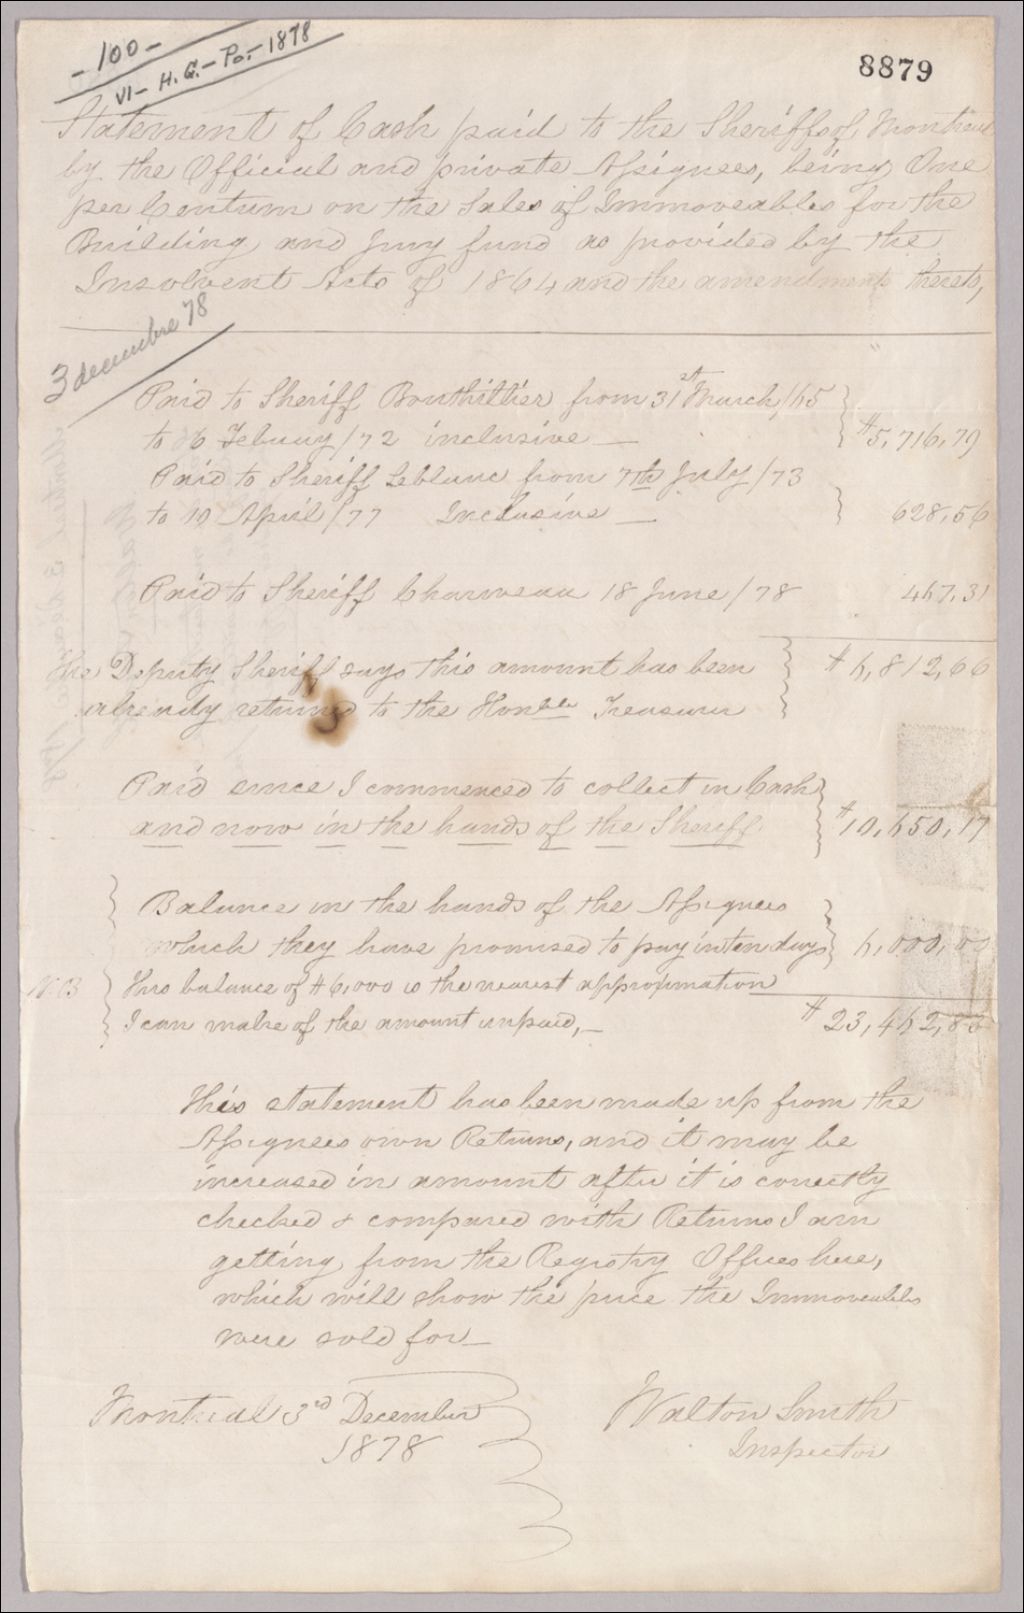 - 100 -
VI - H. G. - Po. - 1878
8879
Statement of Cash paid to the Sheriffs of Montreal
by the Official and private Assignees, being One
per Centum on the Sales of Immoveables for the
Building and Jury fund as provided by the
Insolvent Acts of 1864 and the amendments thereto,
3 decembre 78
Paid to Sheriff Bouthillier from 31st March/65 } $5,716,79
to 26 Febuary/72 inclusive —
Paid to Sheriff Leblanc from 7th July/73
to 19 April/77 Inclusive — } 628,56
Paid to Sheriff Charweau 18 June/78 467,31
The Deputy Sheriff says this amount has been } $6,812,66
already returned to the Honble Treasurer
Paid since I commenced to collect in Cash } $10,650,17
and now in the hands of the Sheriff
Balance in the hands of the Assignees
which they have promised to pay in ten days } 6,000,00
N.B This balance of $6,000 is the nearest approximation
I can make of the amount unpaid,— $23,462,83
This statement has been made up from the
Assignees own Returns, and it may be
increased in amount after it is correctly
checked & compared with Returns I am
getting from the Registry Offices here,
which will show the price the Immoveables
were sold for—
Montreal 3rd December
1878
Walton Smith
Inspector